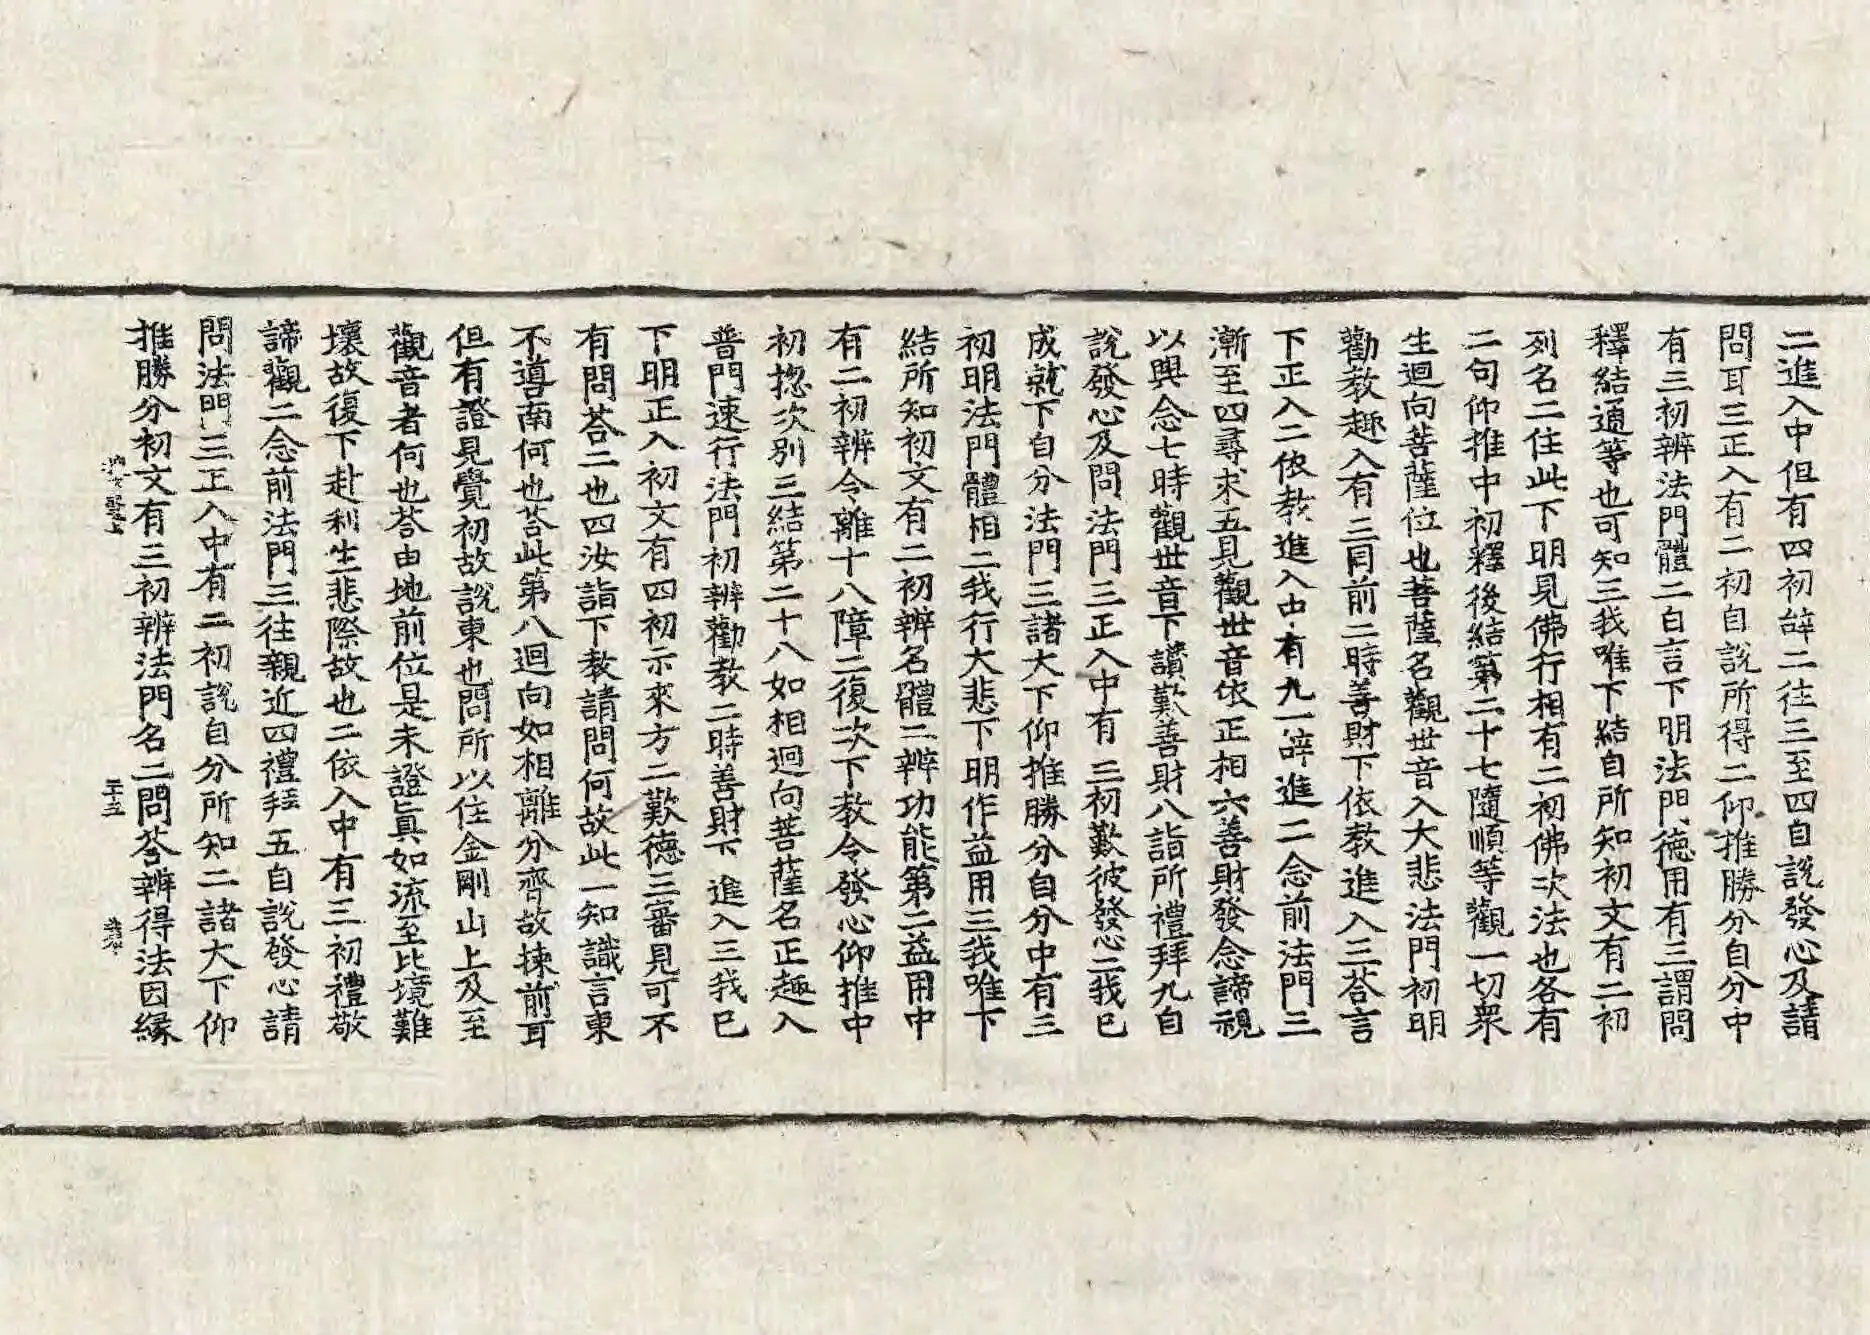 二進入中但有四初辝二往三至四自說發心及請
問耳三正入有二初自說所得二仰推勝分自分中
有三初辨法門體二白言下明法門德用有三謂問
釋結通等也可知三我唯下結自所知初文有二初
列名二住此下明見佛行相有二初佛次法也各有
二句仰推中初釋後結第二十七隨順等觀一切衆
生迴向菩薩位也菩薩名觀世音入大悲法門初明
勸教趣入有三同前二時善財下依教進入三荅言
下正入二依教進入中有九一辝進二念前法門三
漸至四尋求五見觀世音依正相六善財發念諦視
以興念七時觀世音下讚歎善財八詣所禮拜九自
說發心及問法門三正入中有三初歎彼發心二我已
成就下自分法門三諸大下仰推勝分自分中有三
初明法門體相二我行大悲下明作益用三我唯下
結所知初文有二初辨名體二辨功能第二益用中
有二初辨令離十八障二復次下教令發心仰推中
初揔次別三結第二十八如相迴向菩薩名正趣入
普門速行法門初辨勸教二時善財下進入三我已
下明正入初文有四初示來方二歎德三審見可不
有問荅二也四汝詣下教請問何故此一知識言東
不導南何也荅此第八迴向如相離分齊故揀前耳
但有證見覺初故說東也問所以住金剛山上及至
觀音者何也荅由地前位是未證眞如流至比境難
壞故復下赴利生悲際故也二依入中有三初禮敬
諦觀二念前法門三往親近四禮拜五自說發心請
問法門三正入中有二初說自分所知二諸大下仰
推勝分初文有三初辨法門名二問荅辨得法因緣